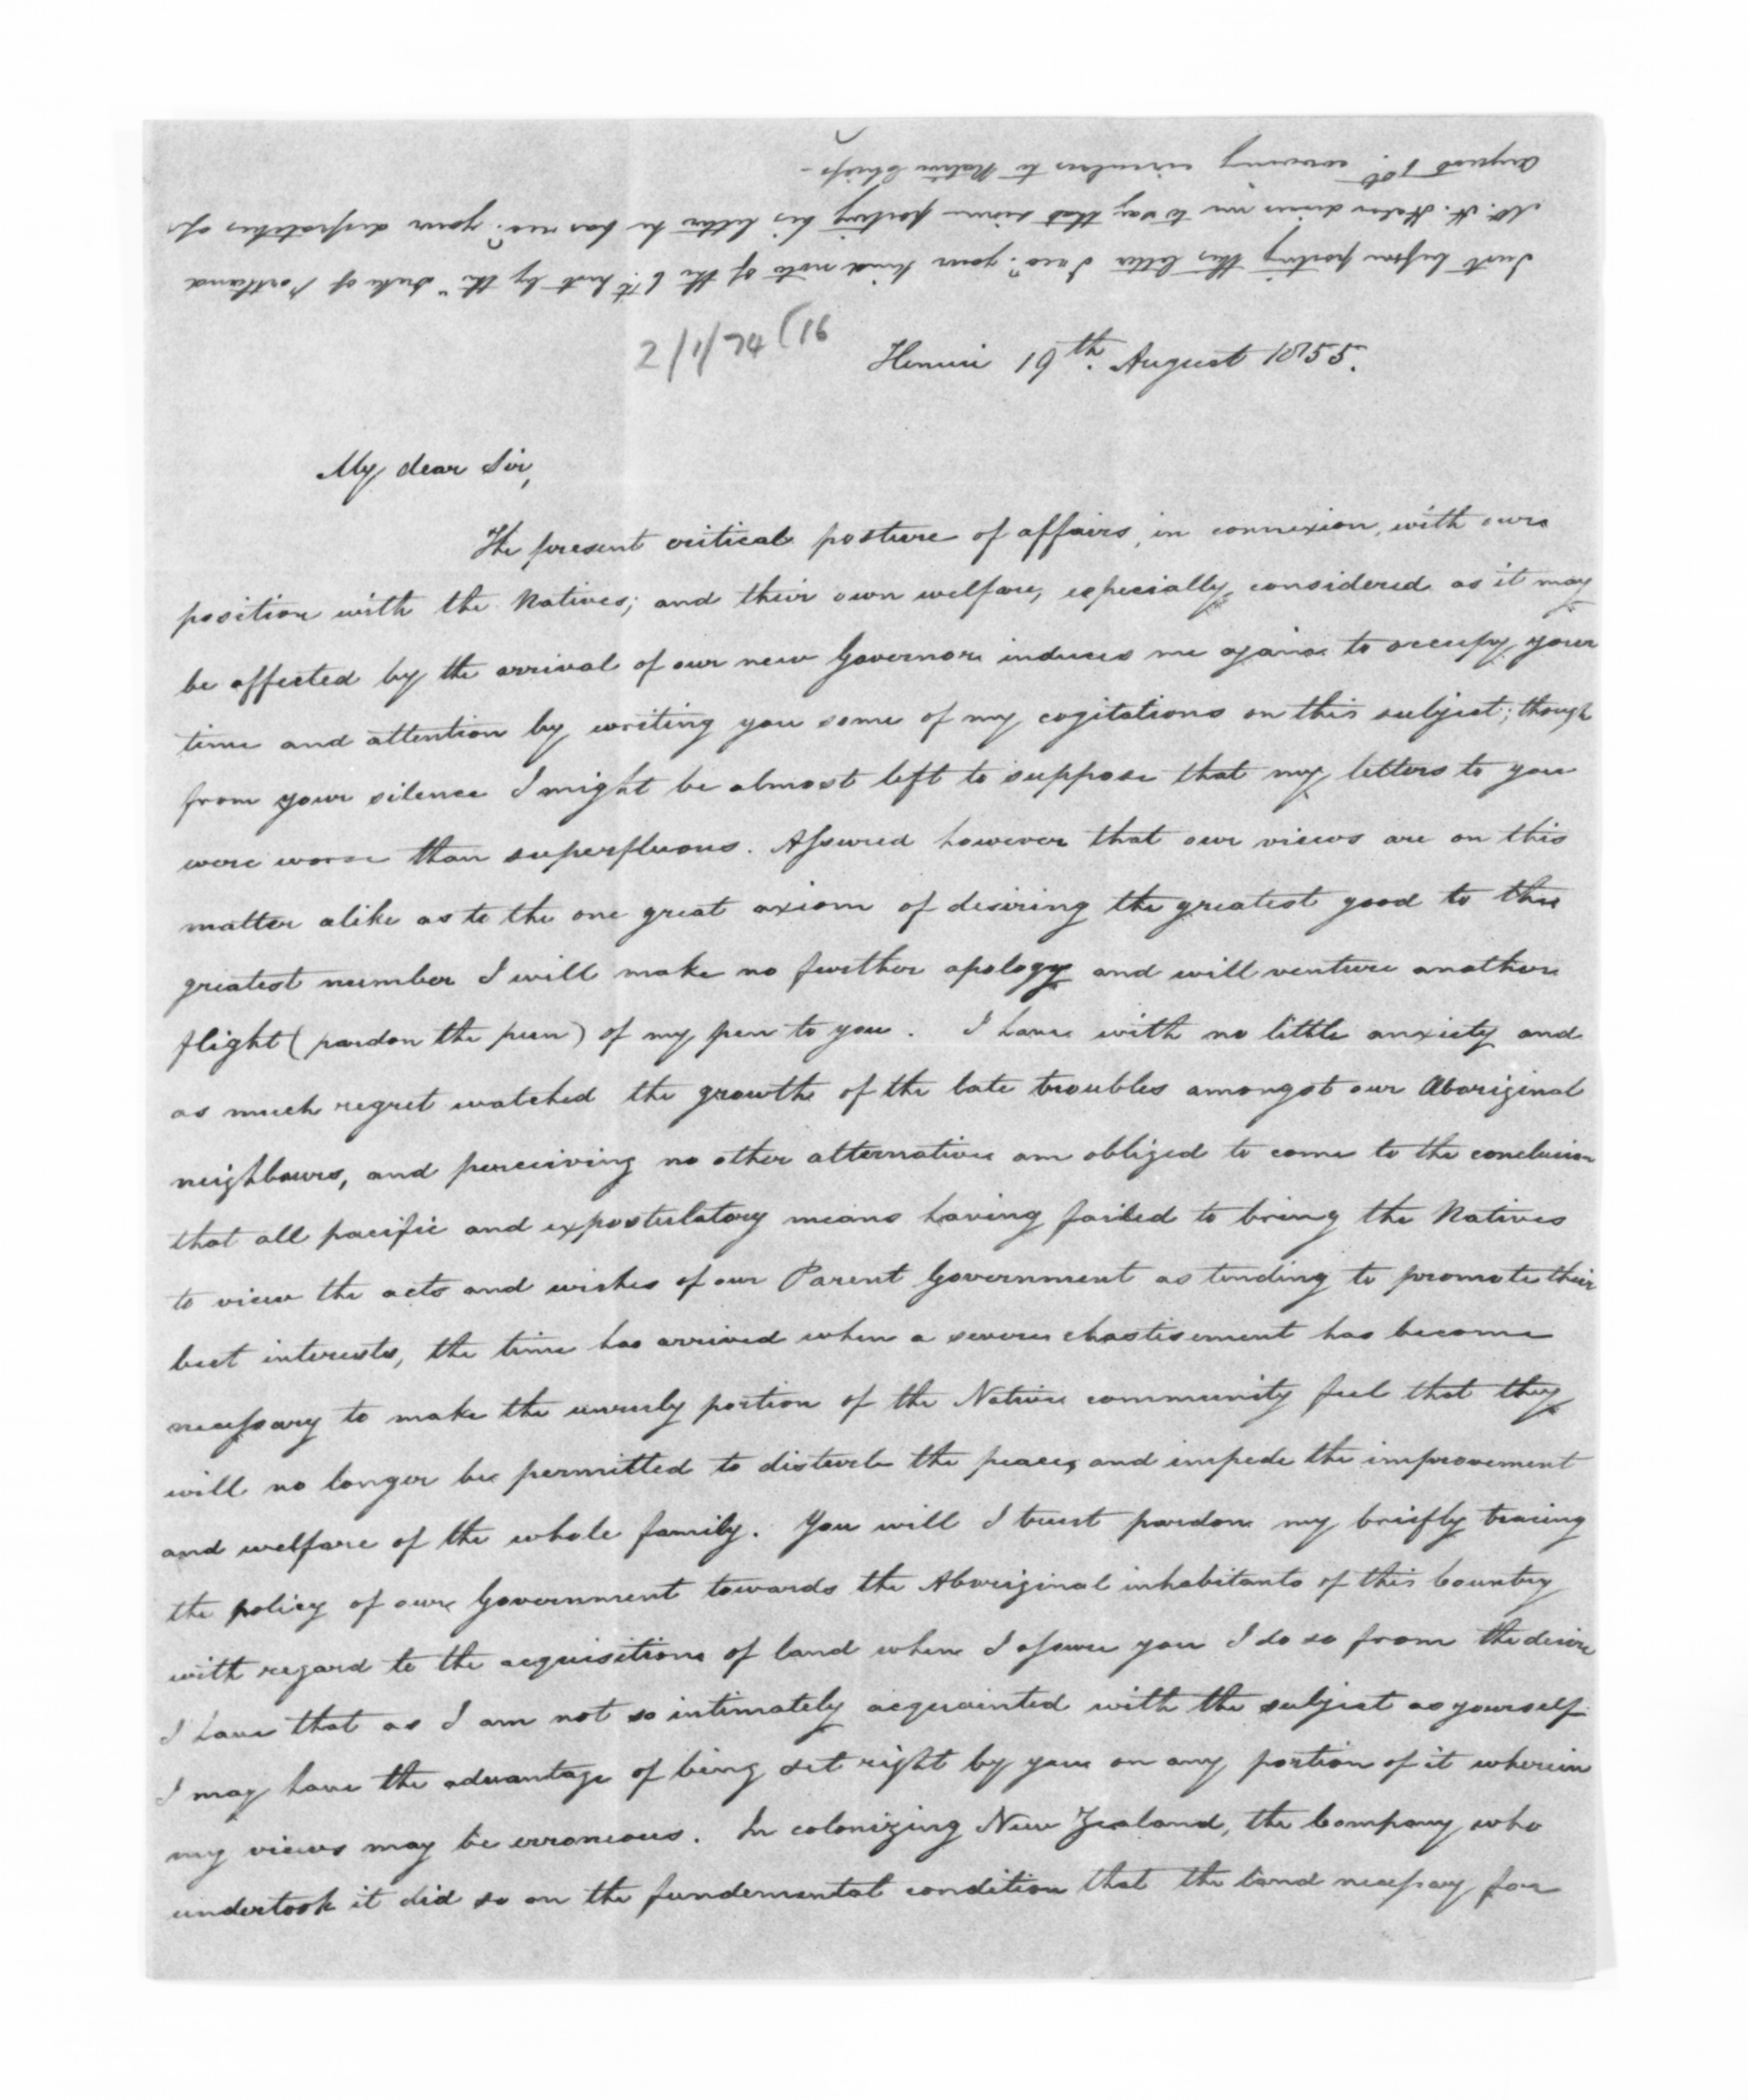 Just before posting this letter I recd. your kind note of the 6th. inst by the "Duke of Portland
Mr. H. Halse desires me to say that since posting his letter he has recd. your despatches of
August 1st. covering circulars to Native Chiefs -
2/1/74 (16
Henui 19th. August 1855.
My dear Sir,
The present critical posture of affairs, in connexion, with our
position with the Natives; and their own welfare, especially considered as it may
be affected by the arrival of our new Governor induces me again to occupy your
time and attention by writing you some of my cogitations on this subject; though
from your silence I might be almost left to suppose that my letters to you
were worse than superfluous. Assured however that our views are on this
matter alike as to the one great axiom of desiring the greatest good to the
greatest number I will make no further apology and will venture another
flight (pardon the pun) of my pen to you. I have with no little anxiety and
as much regret watched the growth of the late troubles amongst our Aboriginal
neighbours, and perceiving no other alternative am obliged to come to the conclusion
that all pacific and expostulatory means having failed to bring the Natives
to view the acts and wishes of our Parent Government as tending to promote their
best interests, the time has arrived when a severe chastisement has become
necessary to make the unruly portion of the Native community feel that they
will no longer be permitted to disturb the peace, and impede the improvement
and welfare of the whole family. You will I trust pardon my briefly tracing
the policy of our Government towards the Aboriginal inhabitants of this Country
with regard to the acquisition of land when I assure you I do so from the desire
I have that as I am not so intimately acquainted with the subject as yourself
I may have the advantage of being set right by you on any portion of it wherein
my views may be erroneous. In colonizing New Zealand, the Company who
undertook it did so on the fundemental condition that the land necessary for